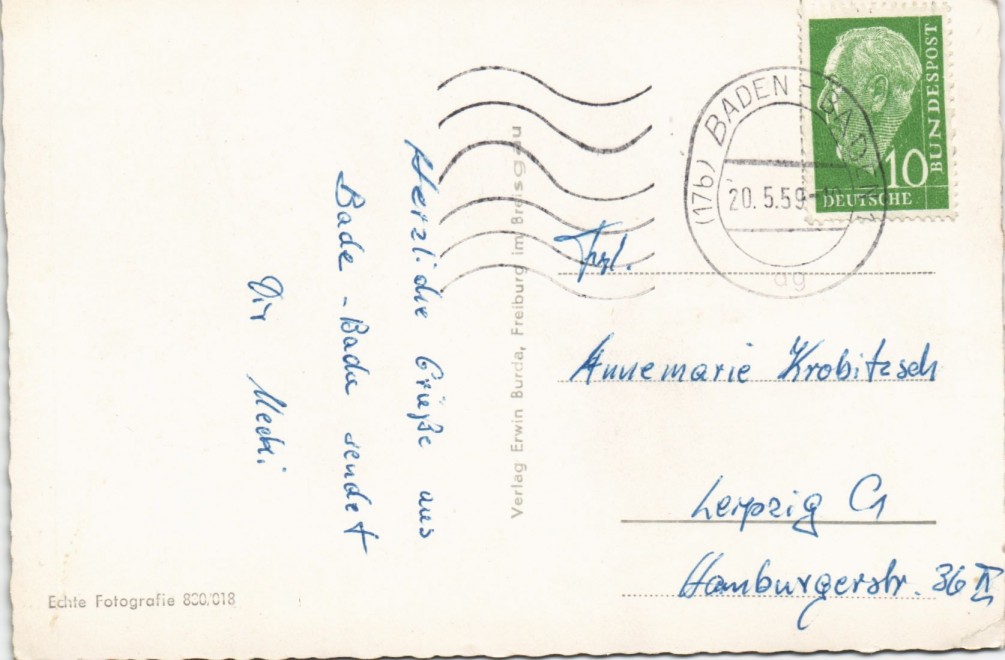 Herzliche Grüße aus
Bade-Bade sendet
Dir Mecki
Echte Fotografie 830/018
Verlag Erwin Burda, Freiburg im Breisgau
(17b) BADEN-BADEN
20.5.59
ag
DEUTSCHE
BUNDESPOST
10
Frl.
Annemarie Krobitzsch
Leipzig C1
Hamburgerstr. 36 II